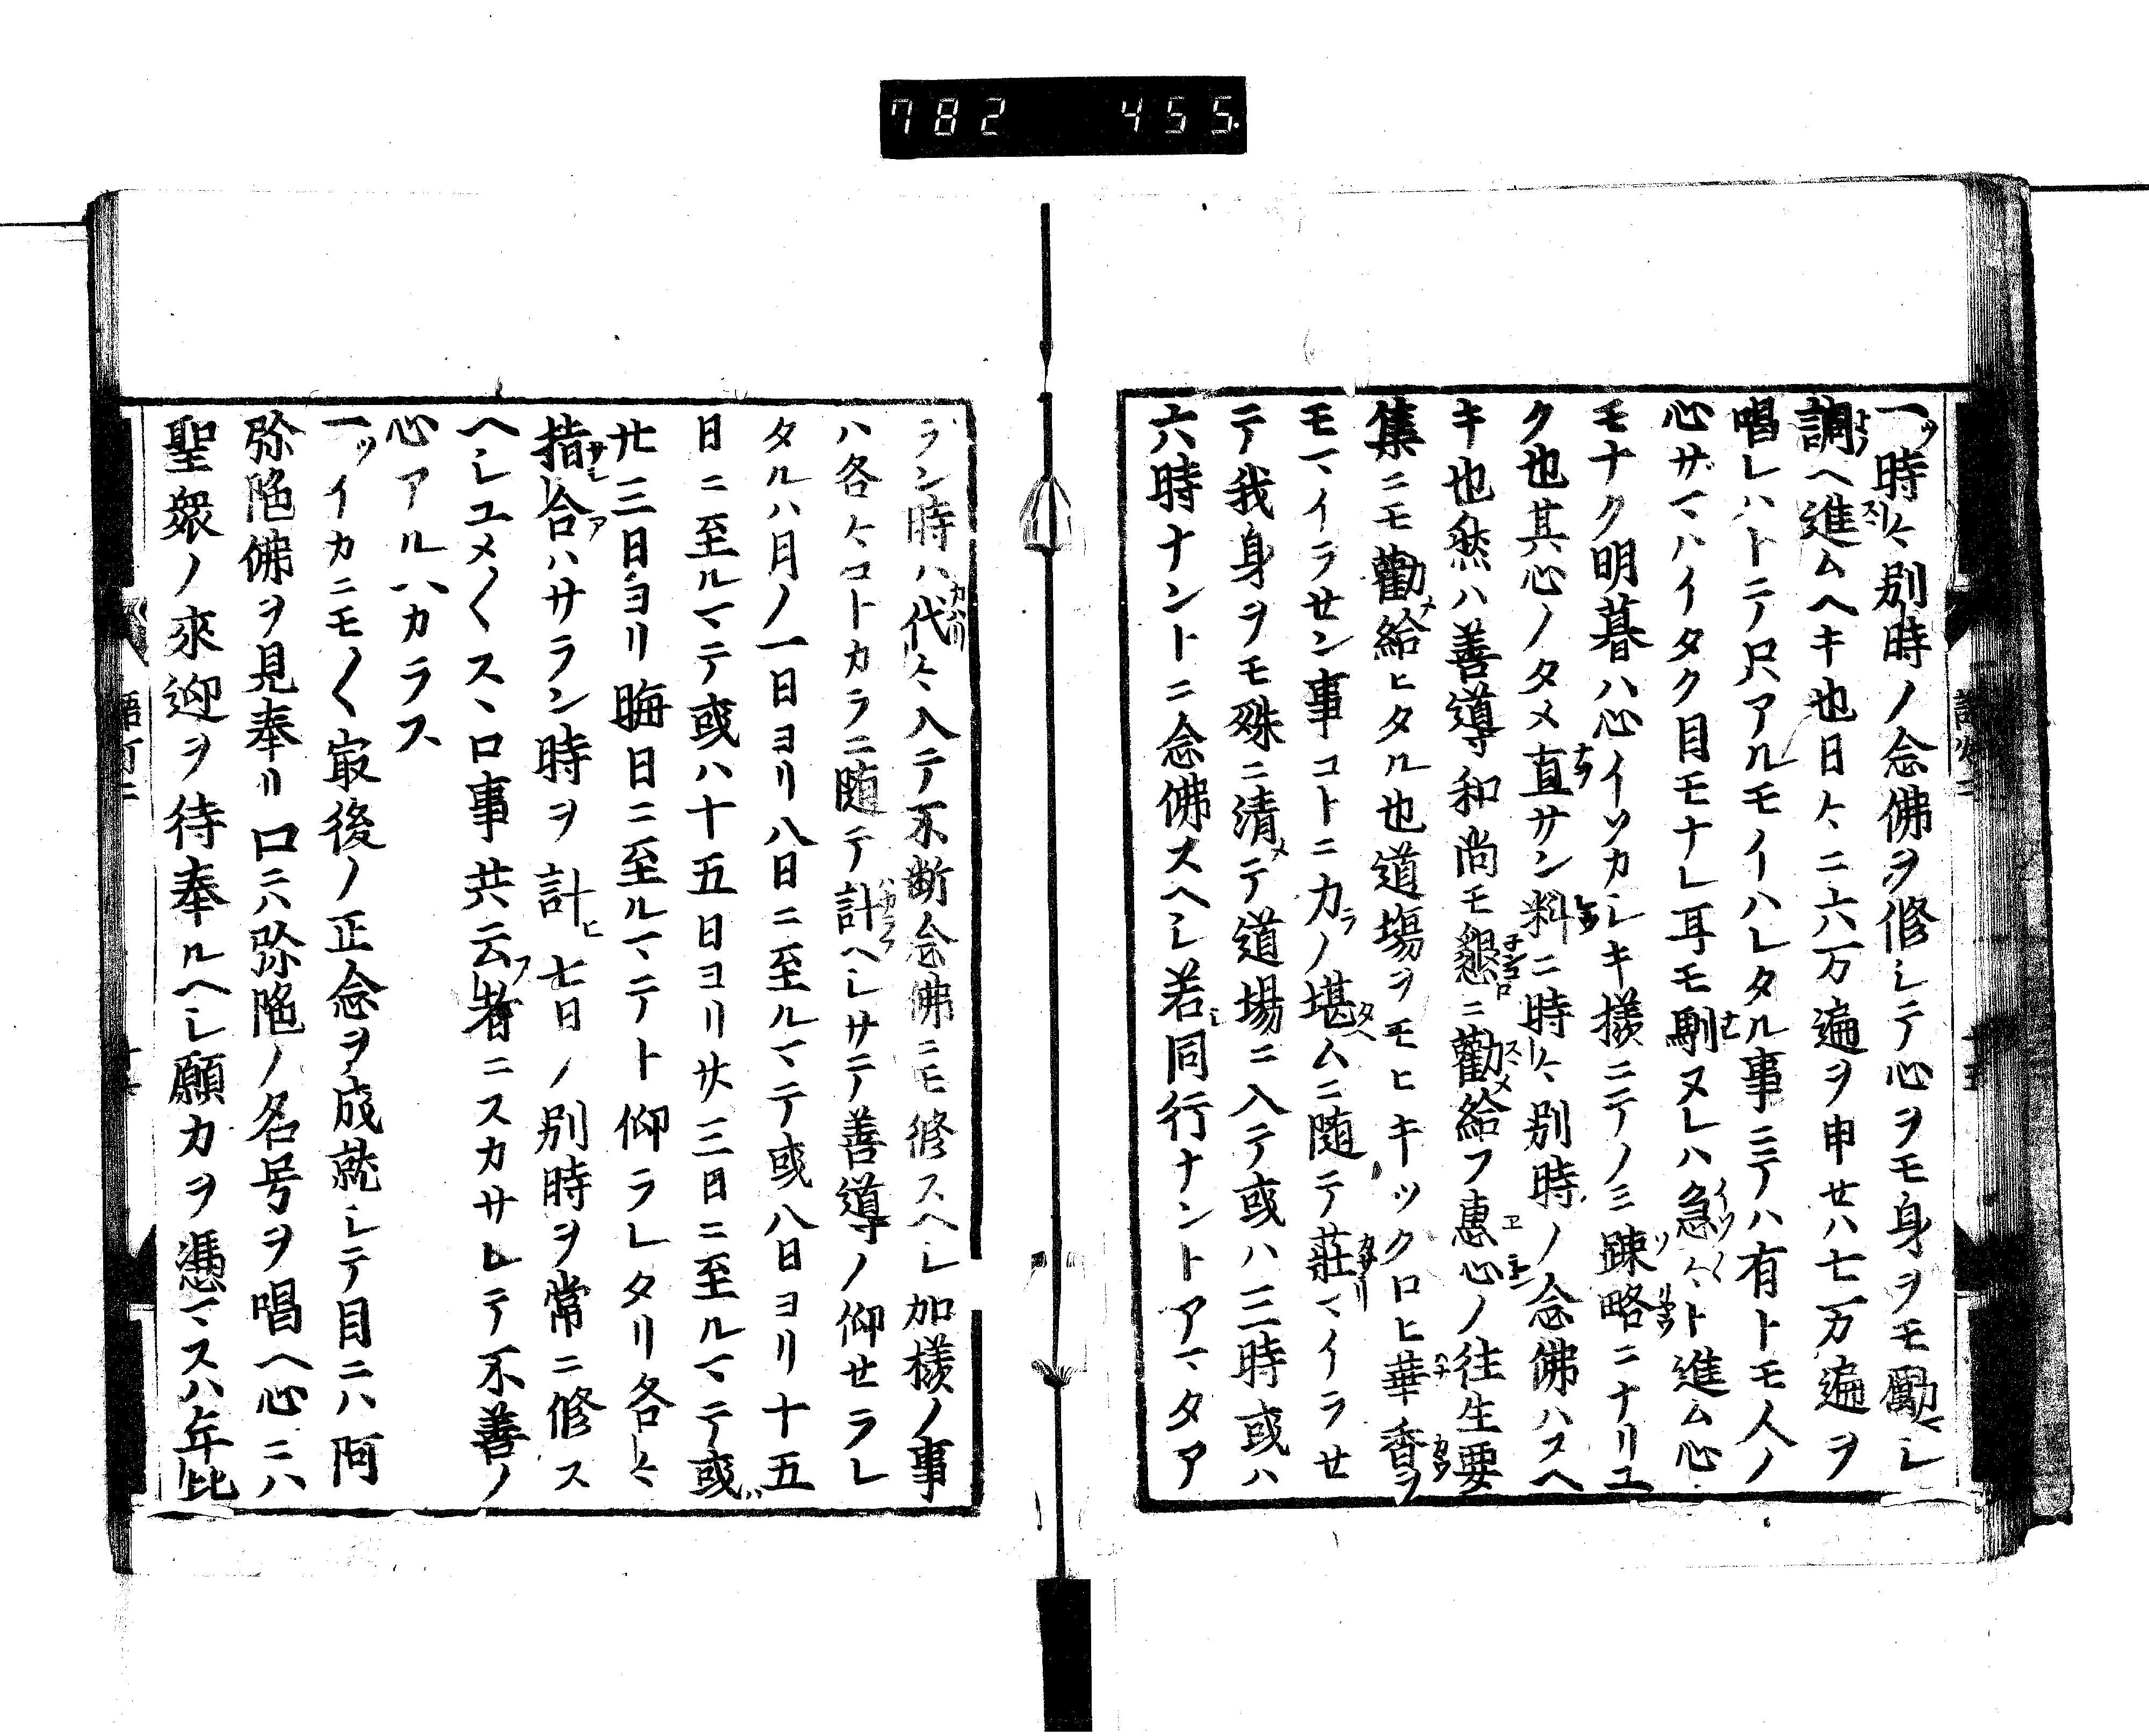 782 455.
一ッ時々別時ノ念佛ヲ修シテ心ヲモ身ヲモ勵マシ
調ヘ進ムヘキ也日々ニ六万遍ヲ申せハ七万遍ヲ
唱レハトテ只アルモイハレタル事ニテハ有トモ人ノ
心サマハイタク目モナレ耳モ馴ヌレハ急々ト進ム心
モナク明暮ハ心イソカシキ様ニテノミ疎略ニナリユ
ク也其心ノタメ直サン料ニ時々別時ノ念佛ハスヘ
キ也然ハ善導和尚モ懇ニ勸給フ惠心ノ往生要
集ニモ勸給ヒタル也道塲ヲモヒキツクロヒ華香ヲ
モマイラせン事コトニ力ノ堪ムニ随テ莊マイラせ
テ我身ヲモ殊ニ清テ道場ニ入テ或ハ三時或ハ
六時ナントニ念佛スヘシ若同行ナントアマタア
ラン時ハ代々入テ不断念佛ニモ修スヘシ加様ノ事
ハ各々コトカラニ随テ計ヘシサテ善導ノ仰せラレ
タルハ月ノ一日ヨリ八日ニ至ルマテ或八日ヨリ十五
日ニ至ルマテ或ハ十五日ヨリ廿三日ニ至ルマテ或
廿三日ヨリ晦日ニ至ルマテト仰ラレタリ各々
指合ハサラン時ヲ計七日ノ別時ヲ常ニ修ス
ヘシユメ〱スヽロ事共云者ニスカサレテ不善ノ
心アルハカラス
一ッイカニモ〱冣後ノ正念ヲ成就シテ目ニハ阿
弥陁佛ヲ見奉リ口ニハ弥陁ノ名号ヲ唱ヘ心ニハ
聖衆ノ來迎ヲ待奉ルヘシ願力ヲ憑マスハ年比